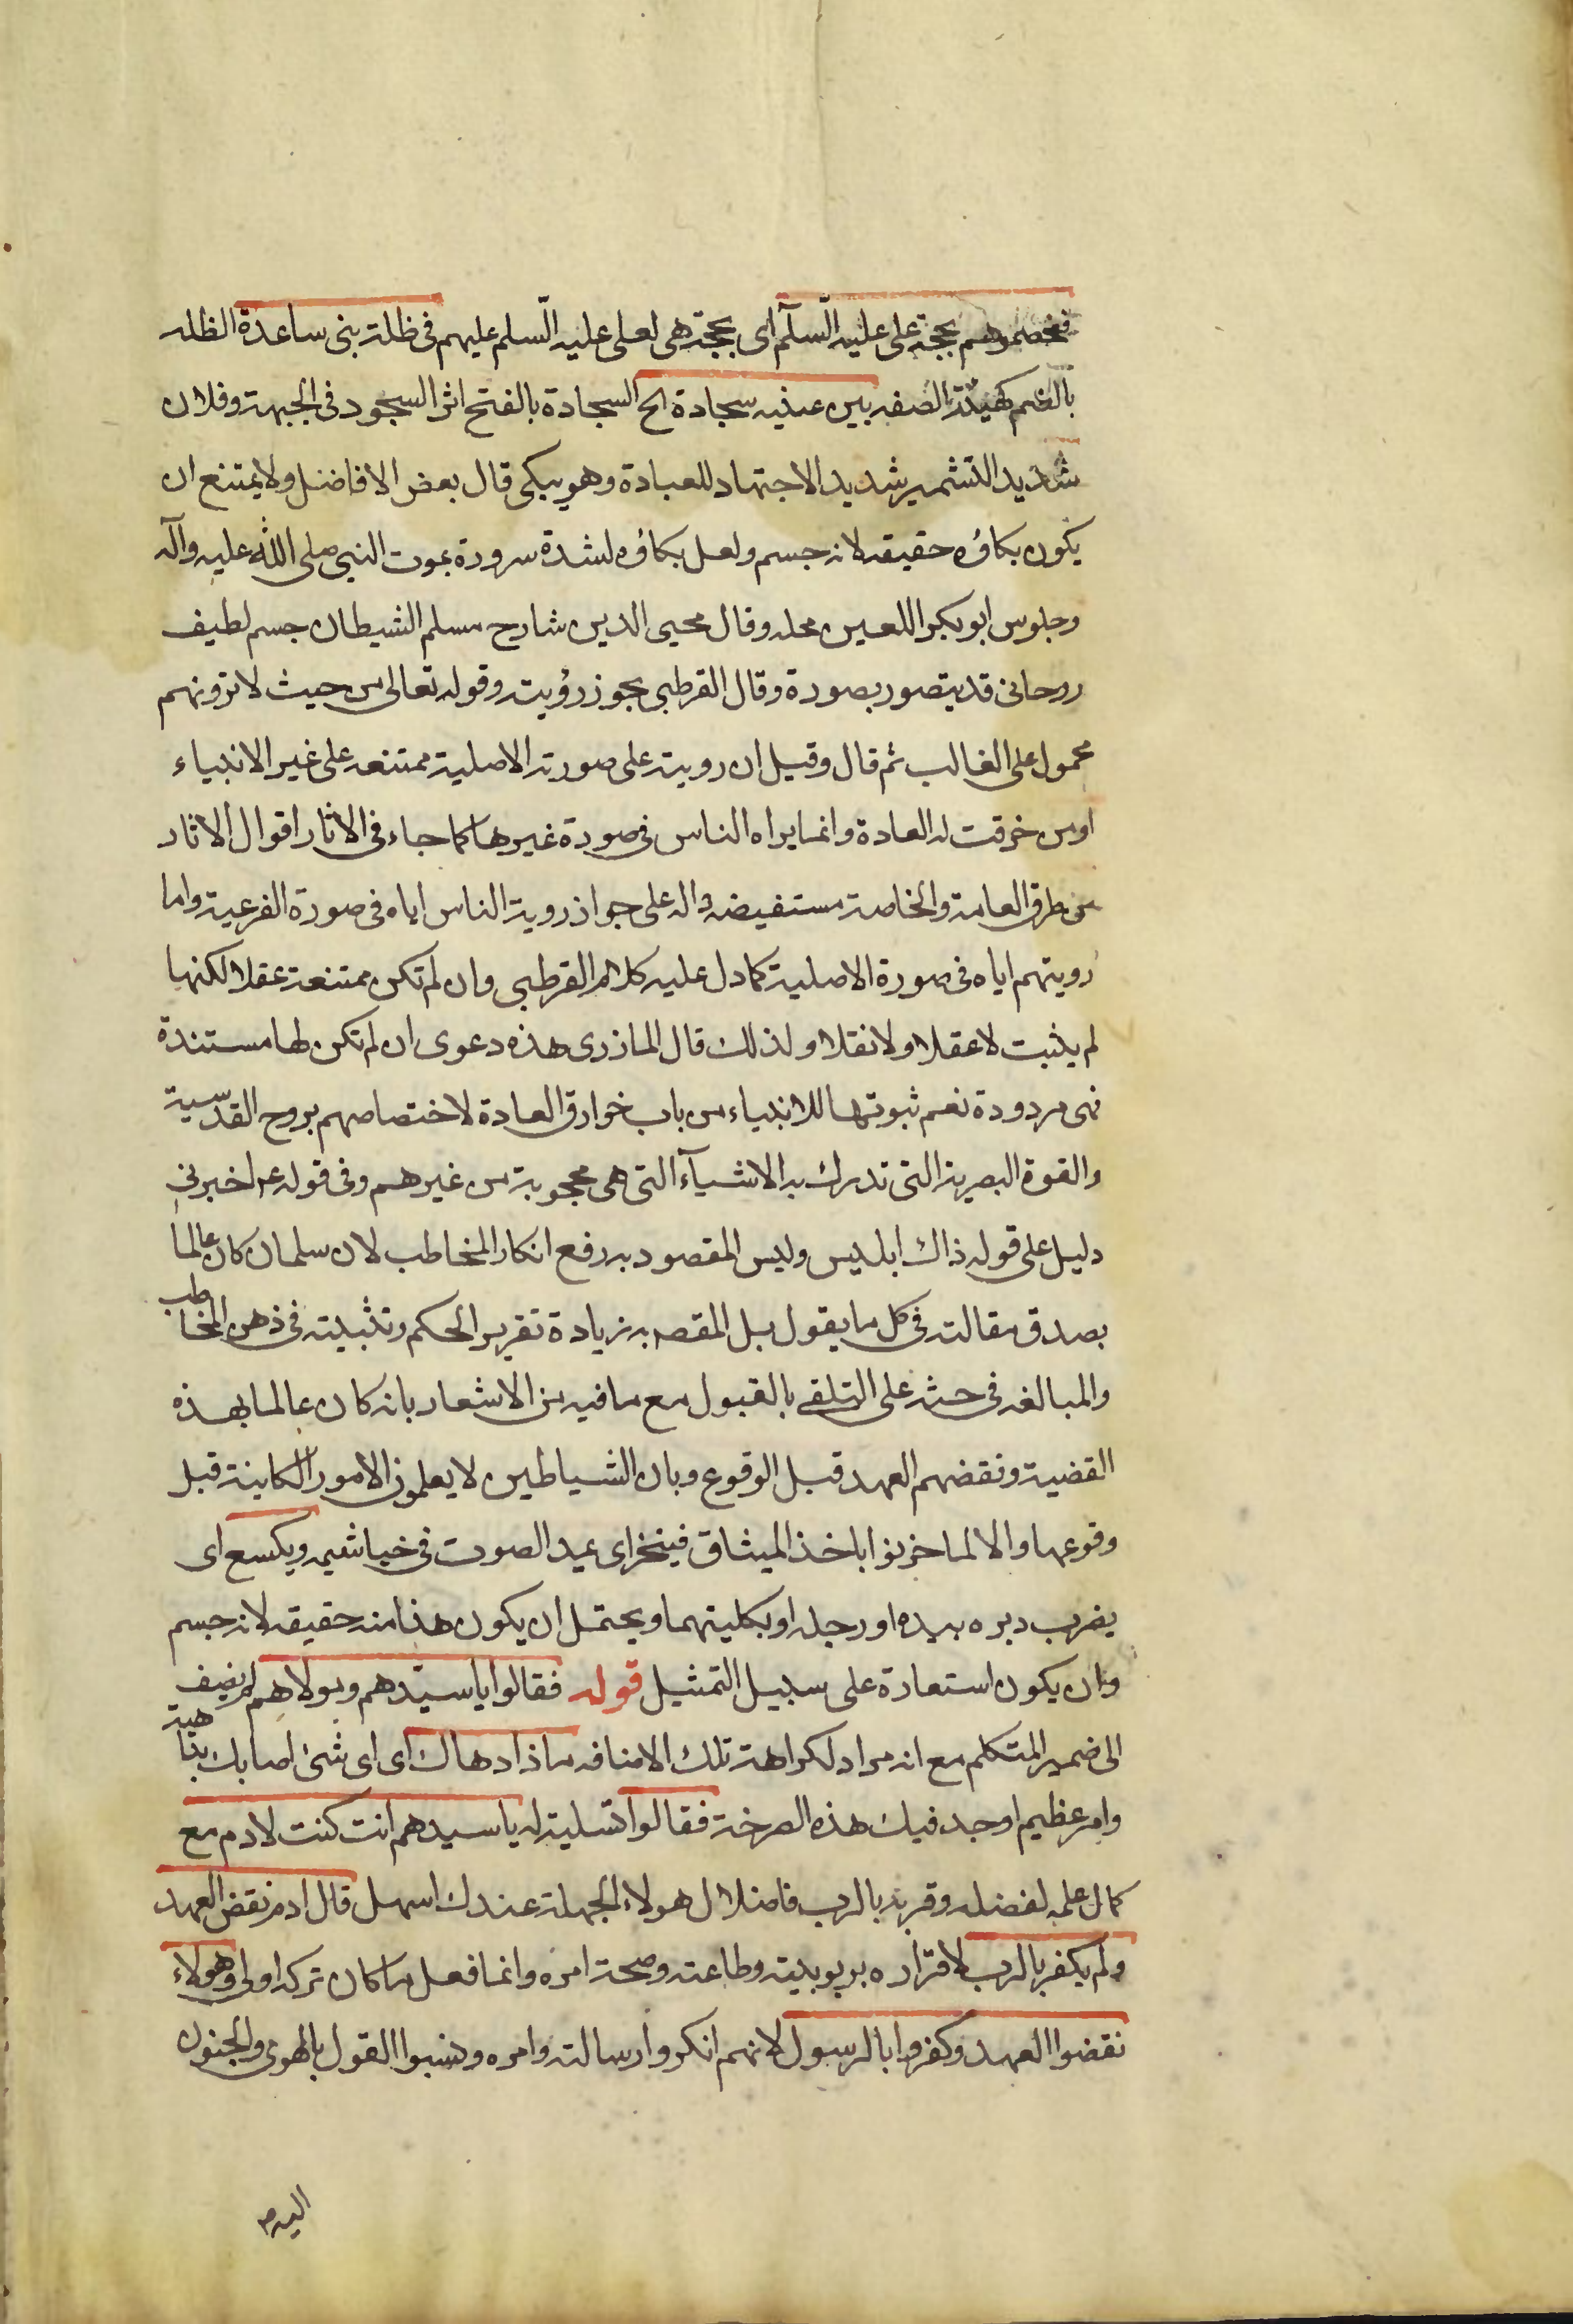 فخصموهم بحجة على عليه السّلآم اى بحجة هى لعلى عليه السّلم عليهم فى ظلة بنى ساعدة الظله
بالضم كهيئة الصفه بين عينيه سجادة الخ السجادة بالفتح اثر السجود فى الجبهة وفلان
شديد التشمير شديد الاجتهاد للعبادة وهو يبكى قال بعض الافاضل ولا يمتنع ان
يكون بكاؤه حقيقه لانه جسم ولعل بكاؤه لشدة سروره بموت النبى صلى الله عليه وآله
وجلوس ابو بكر اللعين محله وقال محيى الدين شارح مسلم الشيطان جسم لطيف
روحانى قد يتصور بصورة وقال القرطبى يجوز رؤيته وقوله تعالى من حيث لا ترونهم
محمول على الغالب ثم قال وقيل ان رويته على صورته الاصلية ممتنعه على غير الانبياء
او من خرقت له العادة وانما يراه الناس فى صورة غيرها كما جاء فى الاثار اقوال الاثار
من طرق العامة والخاصة مستفيضه داله على جواز روية الناس اياه فى صورة الفرعية واما
رويتهم اياه فى صورة الاصلية كما دل عليه كلام القرطبى وان لم تكن ممتنعة عقلا لكنها
لم يثبت لا عقلا ولا نقلا ولذلك قال المازرى هذه دعوى ان لم تكن لها مستندة
فهى مردودة نعم ثبوتها للانبياء من باب خوارق العادة لاختصاصهم بروح القدسية
والقوة البصرية التى تدرك به الاشيآء التى هى محجوبة من غيرهم وفى قوله عم اخبرنى
دليل على قوله ذاك ابليس وليس المقصود به رفع انكار المخاطب لان سلمان كان عالما
بصدق مقالته فى كل ما يقول بل المقصد به زيادة تقرير الحكم وتثبيته فى ذهن المخاطب
والمبالغه فى حثه على التلقى بالقبول مع ما فيه من الاشعار بانه كان عالما بهذه
القضية ونقضهم العهد قبل الوقوع وبان الشياطين لا يعلمون الامور الكاينة قبل
وقوعها والا لما حزنوا باخذ الميثاق فينخر اى يمد الصوت فى خياشيمه ويكسع اى
يضرب دبره بيده او رجله او بكليتهما ويحتمل ان يكون هذا منه حقيقه لانه جسم
وان يكون استعارة على سبيل التمثيل قوله فقالوا يا سيّدهم ومولاهم لم يضيف
الى ضمير المتكلم مع انه مراد لكراهة تلك الاضافه ماذا دهاك اى اى شئ اصابك بداهية
وامر عظيم اوجد فيك هذه الصرخة فقالوا تسلية له يا سيدهم انت كنت لادم مع
كمال علمه لفضله وقربه بالرب فاضلال هولاء الجهلة عندك اسهل قال ادم نقض العهد
ولم يكفر بالرب لاقراره بربوبيته وطاعته وصحة امره وانما فعل ما كان تركه اولى وهولاء
نقضوا العهد وكفروا بالرسول لانهم انكروا رسالته وامره ونسبوا القول بالهوى والجنون
اليه م